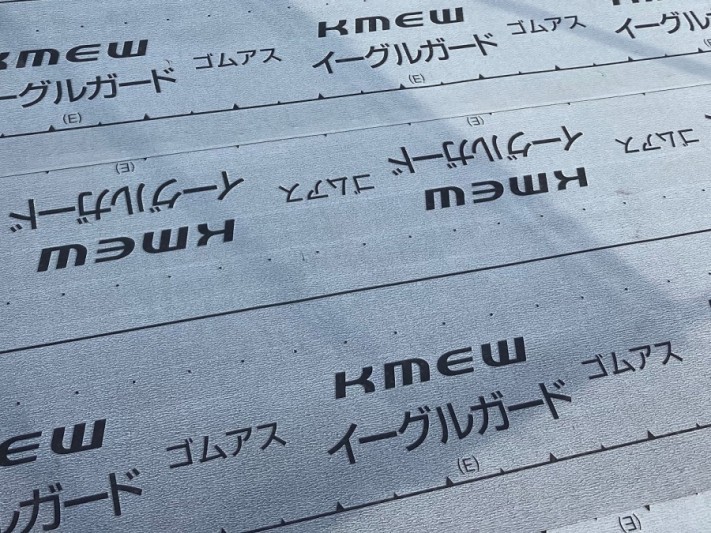 KMEW ゴムアス KMEW ゴムアス
イーグルガード イーグルガード イーグルガ
(E) (E)
(E) (E)
イーグルガード ゴムアス イーグルガード ゴムアス
KMEW KMEW
KMEW ゴムアス
イーグルガード
(E)
KMEW ゴムアス
イーグルガード
(E)